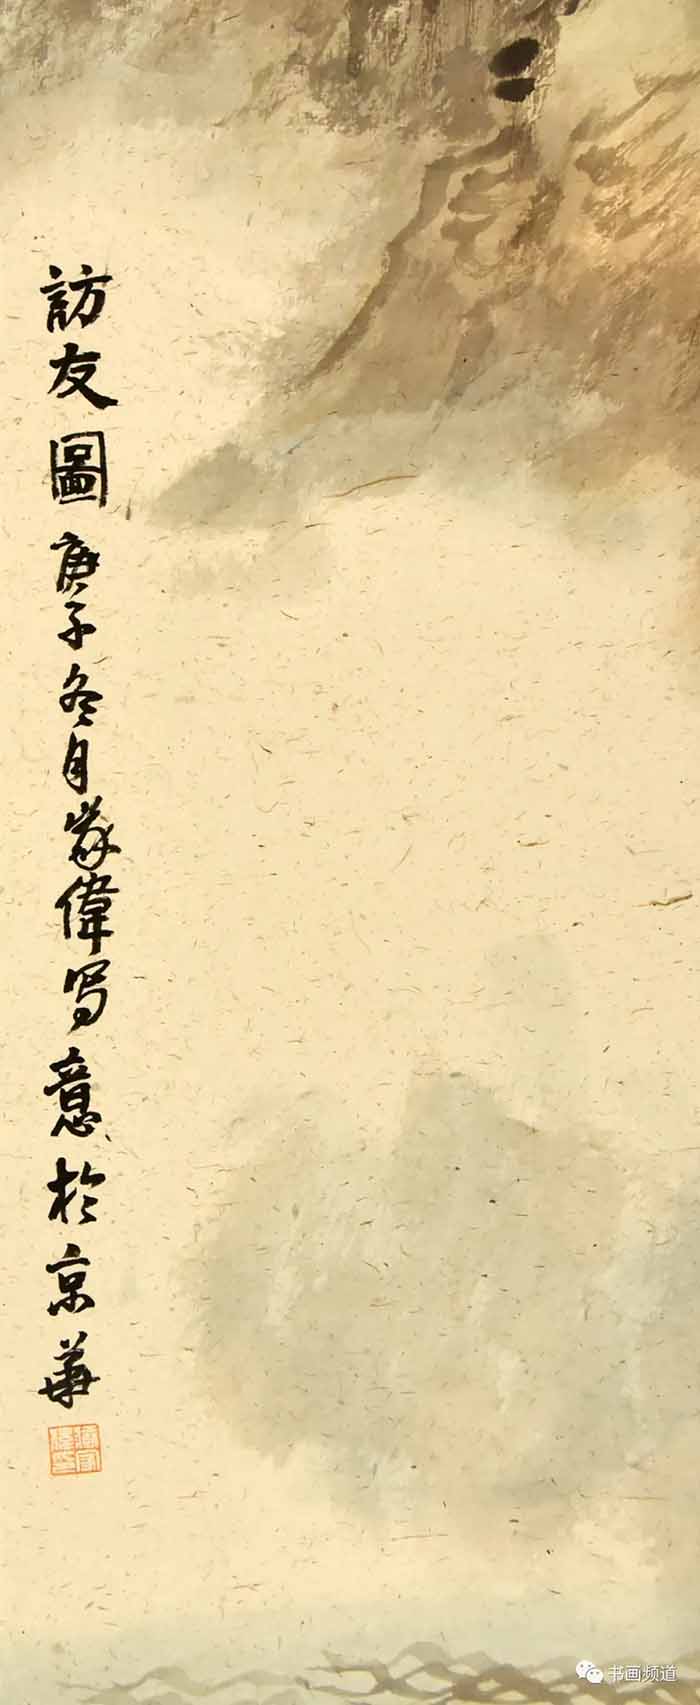 訪友圖 庚子冬月家偉写意於京華
书画频道